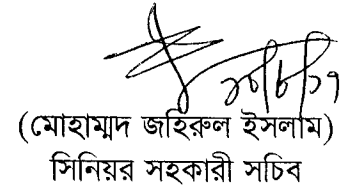 (মোহাম্মদ জহিরুল ইসলাম)
সিনিয়র সহকারী সচিব